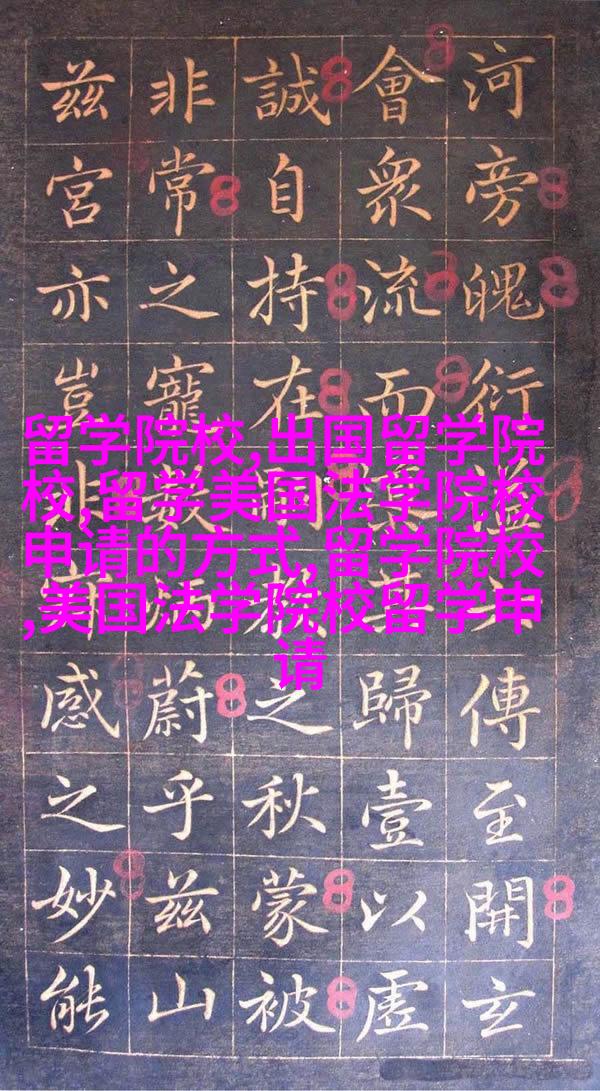 留学院校,出国留学院
校,留学美国法学院校
申请的方式,留学院校
,美国法学院校留学申
请
河旁魄衍傳至開玄
會衆流而歸壹以虛
誠自持在之秋蒙被
非常之寵數蔚乎兹山
兹宮亦豈非感之妙能